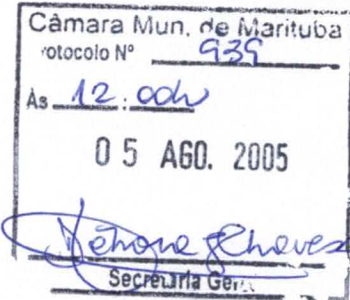 Câmara Mun. de Marituba
rotocolo Nº 939
Às 12:00h
05 AGO. 2005
Chaves
Secretaria Geral